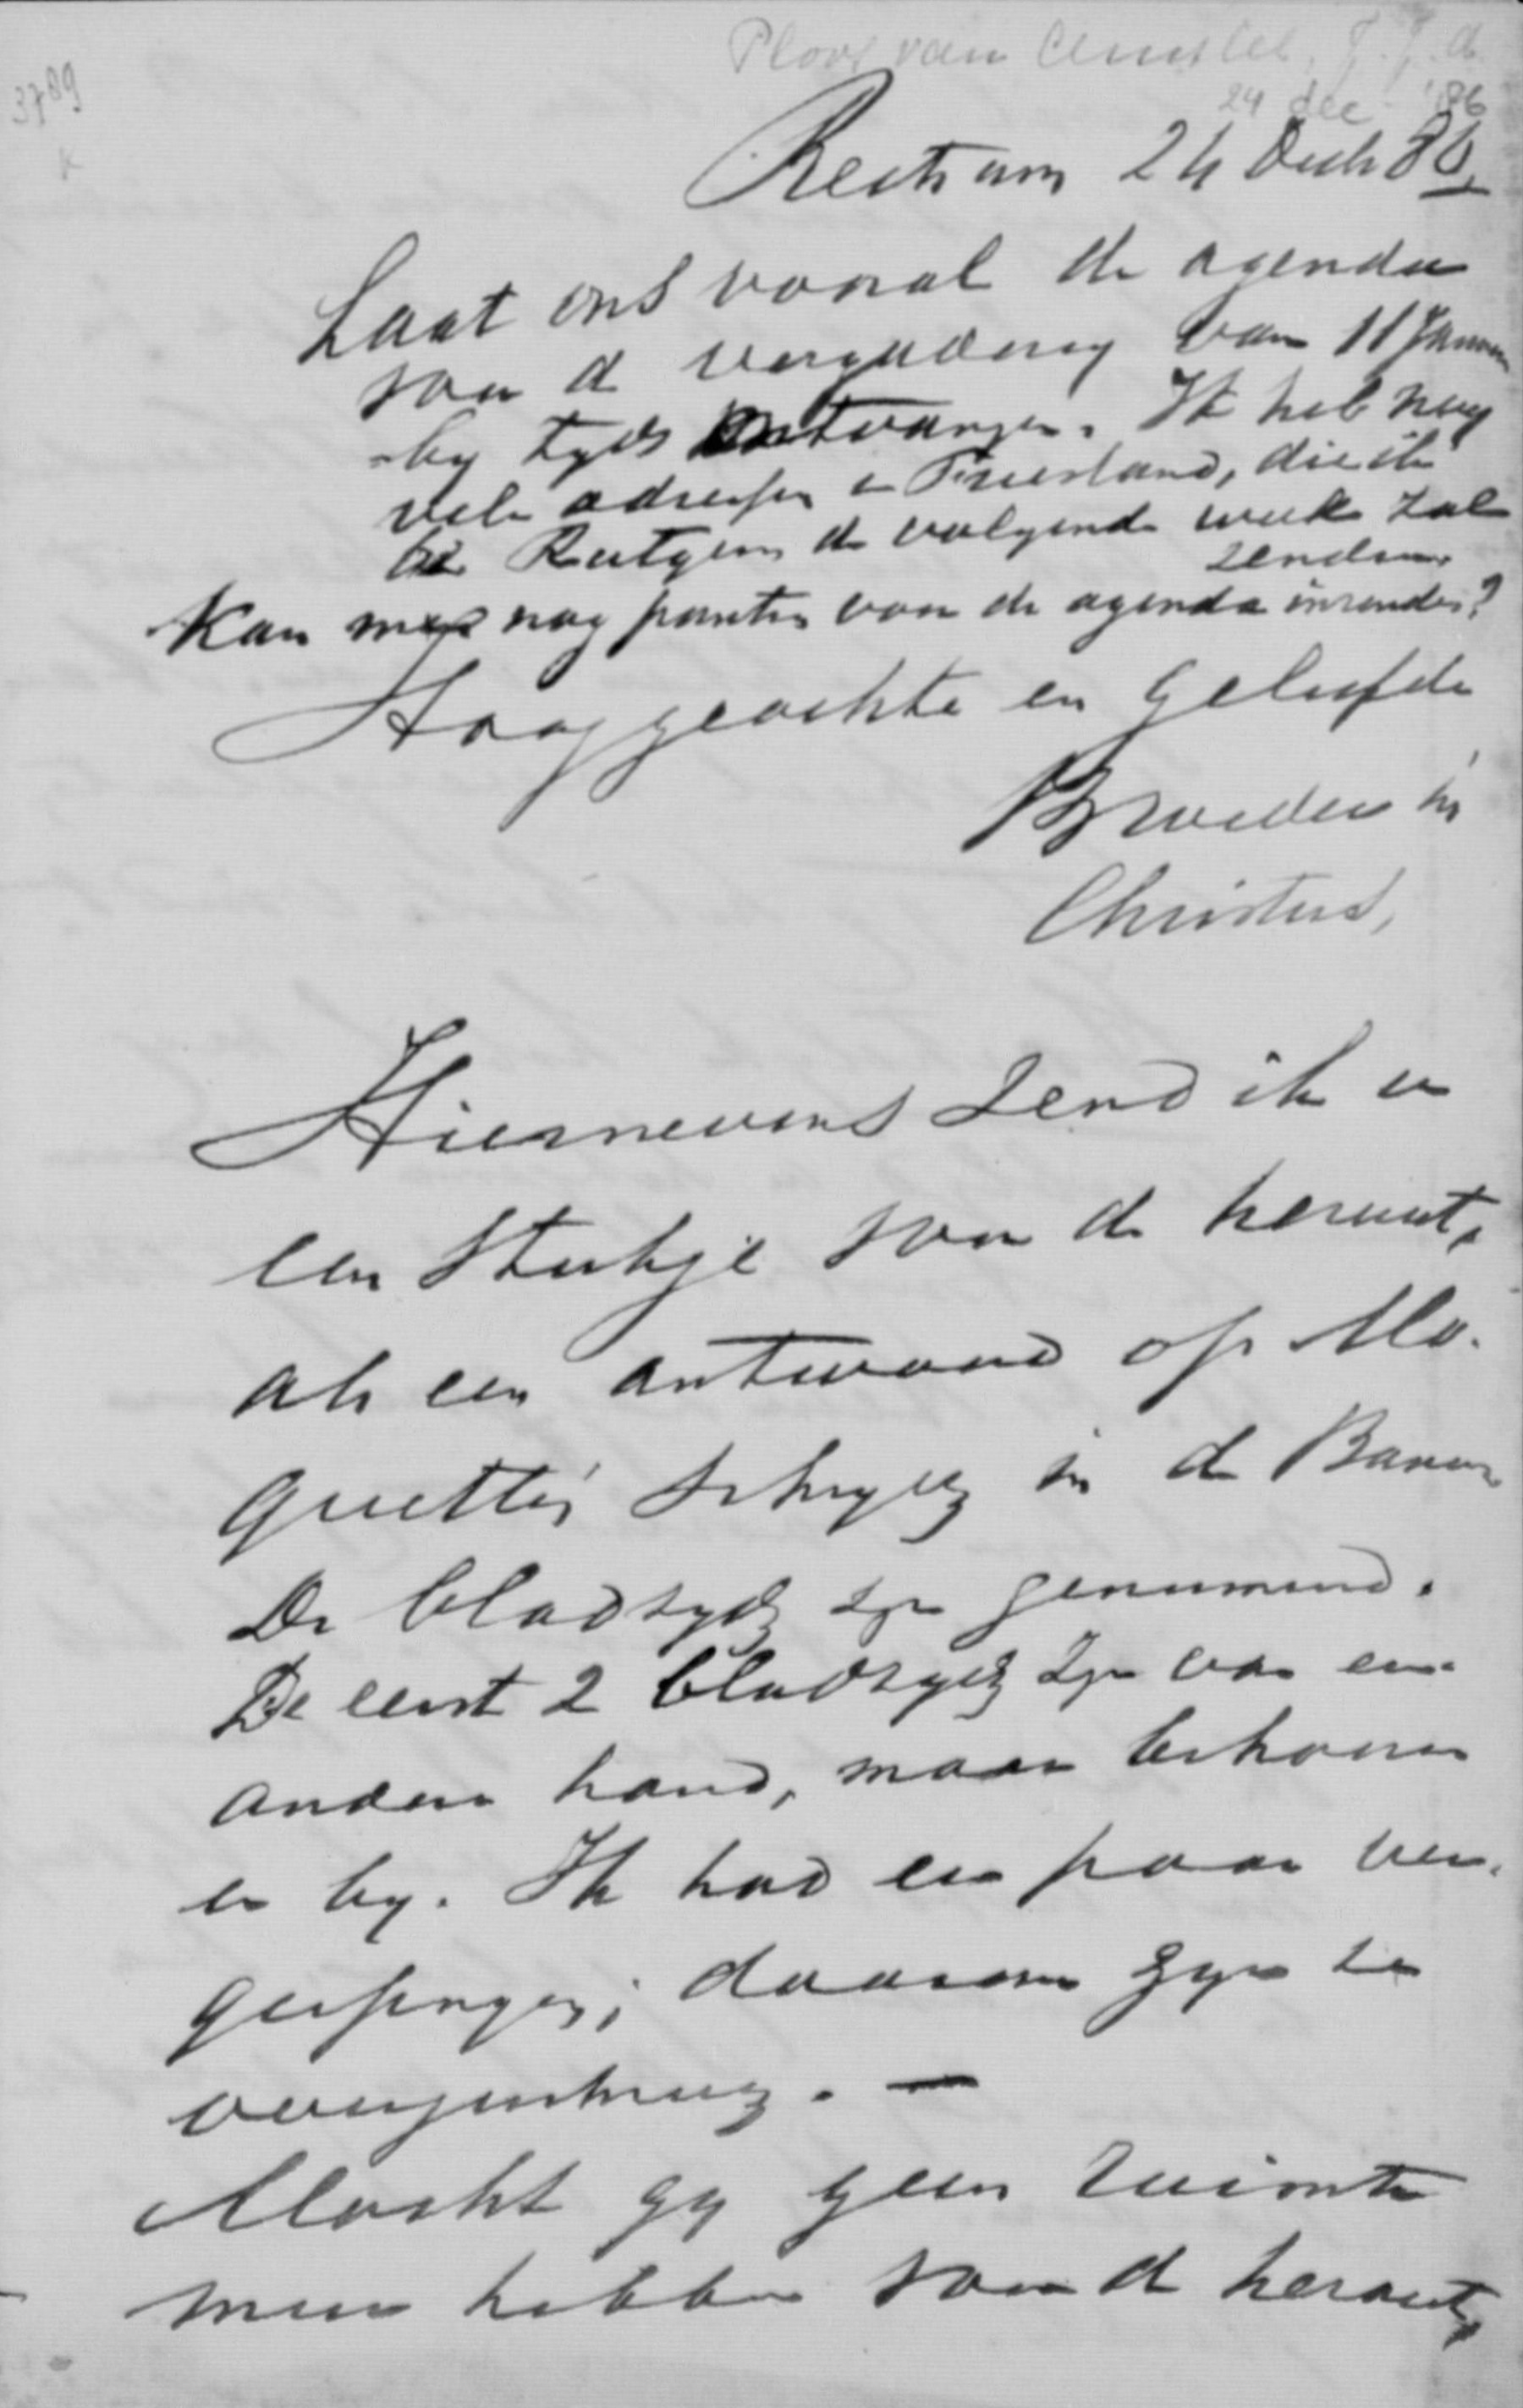 Ploos van Amstel, J.J.A.
24 dec '86
3789
K
Reitsum 24 Decb 86
Laat ons vooral de agenda
voor de vergadering van 11 Januari
by tyds ontvangen. Ik heb nog
vele adressen in Friesland, die ik
Rutgers de volgende week zal
zenden.
Kan men nog punten voor de agenda inzenden?
Hooggeachte en Geliefde
Broeder in
Christus,
Hiernevens zend ik u
een stukje voor de heraut,
als een antwoord op Ho-
in de Banier
De bladzyden zyn genummerd.
De eerste 2 bladzyden zyn van een
andere hand, maar behooren
er by. Ik had een paar ver-
daarom zyn ze
overgeschreven. —
Mocht gy geen ruimte
meer hebben voor de heraut,